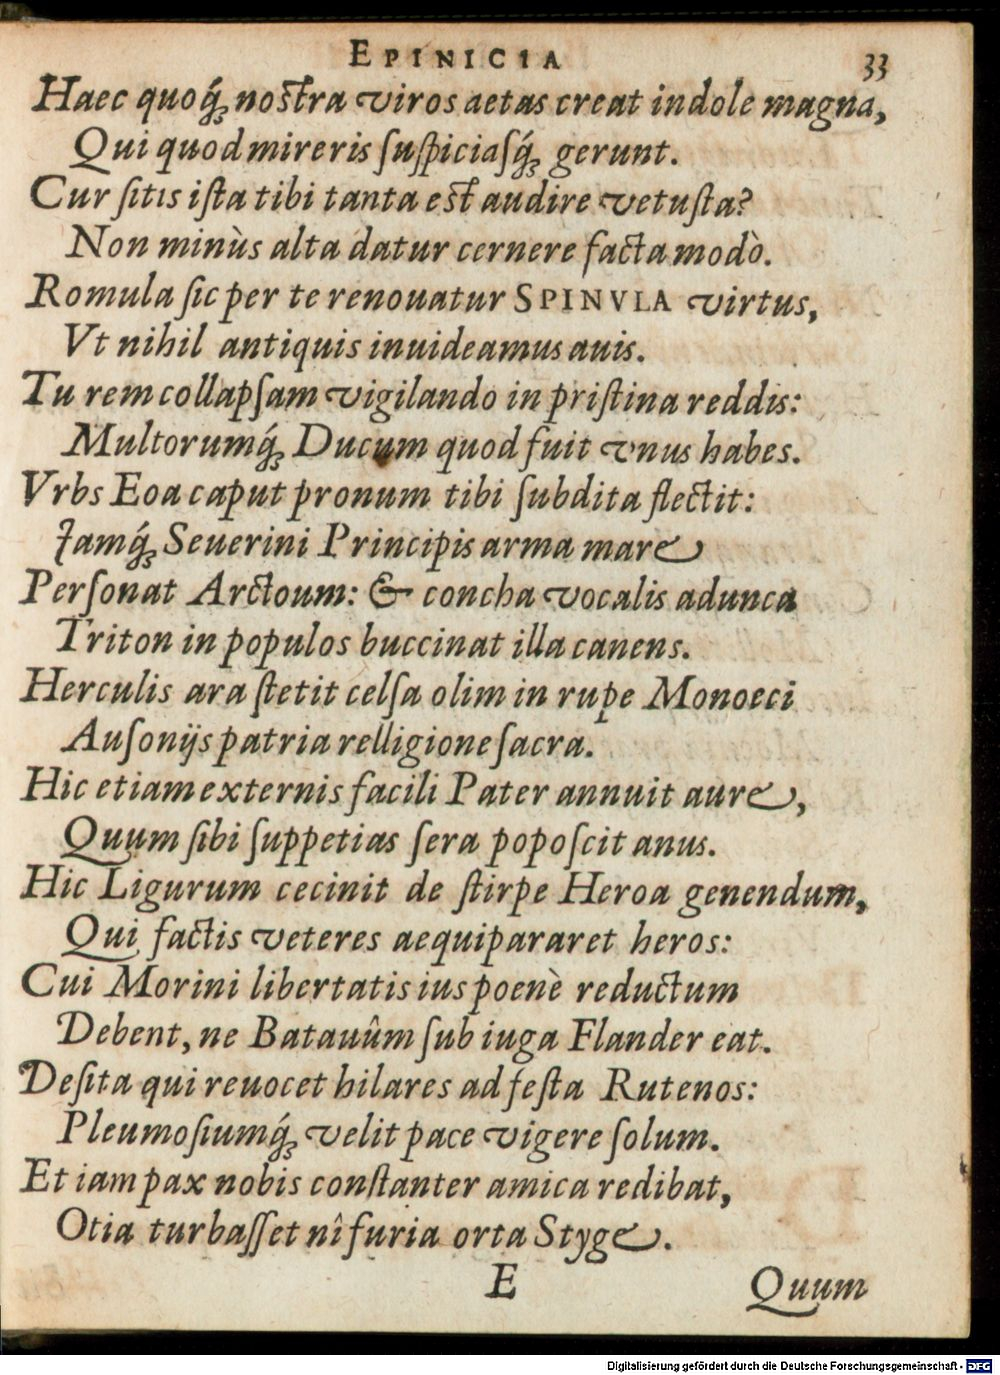 EPINICIA 33
Haec quoq́; nostra viros aetas creat indole magna,
Qui quod mireris suspiciasq́; gerunt.
Cur sitis ista tibi tanta est audire vetusta?
Non minùs alta datur cernere facta modò.
Romula sic per te renouatur SPINVLA virtus,
Vt nihil antiquis inuideamus auis.
Tu rem collapsam vigilando in pristina reddis:
Multorumq́; Ducum quod fuit vnus habes.
Vrbs Eoa caput pronum tibi subdita flectit:
Jamq́; Seuerini Principis arma mare
Personat Arctoum: & concha vocalis adunca
Triton in populos buccinat illa canens.
Herculis ara stetit celsa olim in rupe Monoeci
Ausonijs patria relligione sacra.
Hic etiam externis facili Pater annuit aure,
Quum sibi suppetias sera poposcit anus.
Hic Ligurum cecinit de stirpe Heroa genendum,
Qui factis veteres aequipararet heros:
Cui Morini libertatis ius poenè reductum
Debent, ne Batauûm sub iuga Flander eat.
Desita qui reuocet hilares ad festa Rutenos:
Pleumosiumq́; velit pace vigere solum.
Et iam pax nobis constanter amica redibat,
Otia turbasset nî furia orta Styge.
E Quum
Digitalisierung gefördert durch die Deutsche Forschungsgemeinschaft - DFG